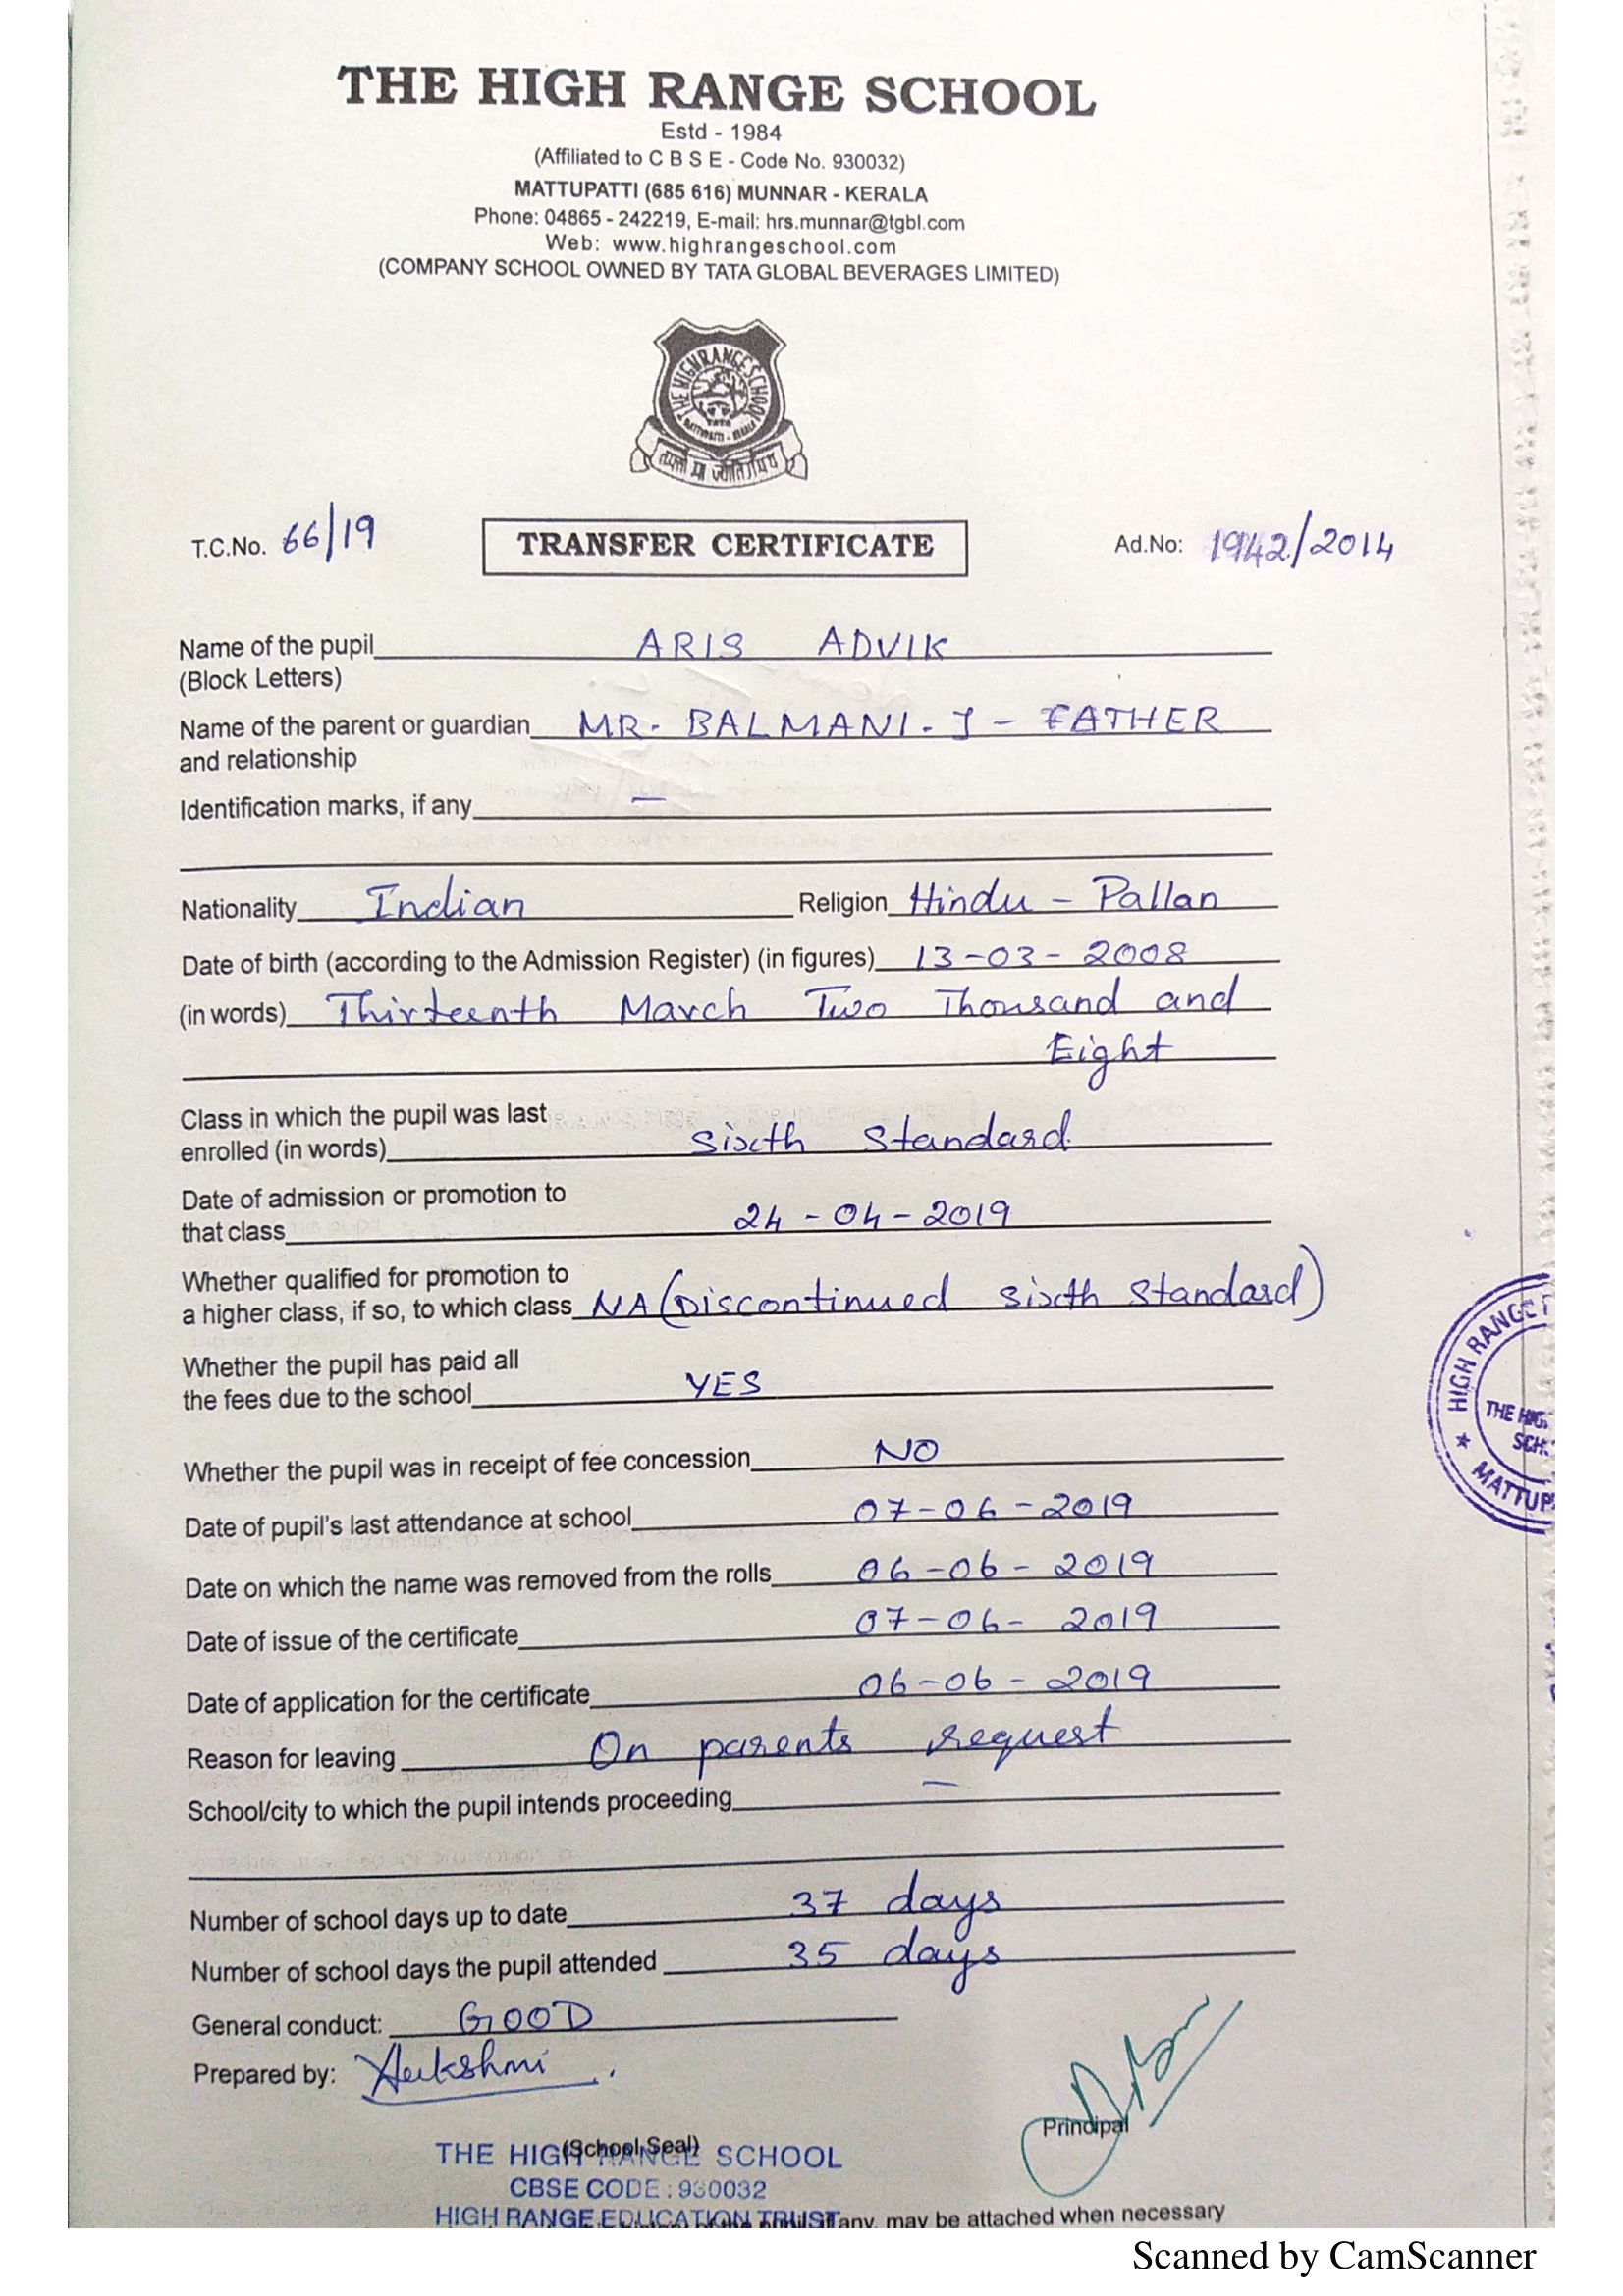 THE HIGH RANGE SCHOOL
Estd - 1984
(Affiliated to C B S E - Code No. 930032)
MATTUPATTI (685 616) MUNNAR - KERALA
Phone: 04865 - 242219, E-mail: hrs.munnar@tgbl.com
Web: www.highrangeschool.com
(COMPANY SCHOOL OWNED BY TATA GLOBAL BEVERAGES LIMITED)
THE HIGH RANGE SCHOOL
तमसो मा ज्योतिर्गमय
T.C.No. 66/19 TRANSFER CERTIFICATE Ad.No: 1942/2014
Name of the pupil ARIS ADVIK
(Block Letters)
Name of the parent or guardian MR. BALMANI. J - FATHER
and relationship
Identification marks, if any —
Nationality Indian Religion Hindu - Pallan
Date of birth (according to the Admission Register) (in figures) 13-03-2008
(in words) Thirteenth March Two Thousand and
Eight
Class in which the pupil was last
enrolled (in words) Sixth Standard
Date of admission or promotion to
that class 24-04-2019
Whether qualified for promotion to
a higher class, if so, to which class NA (Discontinued Sixth Standard)
Whether the pupil has paid all
the fees due to the school YES
HIGH RANGE
THE HIG
SCH
MATTUP
Whether the pupil was in receipt of fee concession NO
Date of pupil's last attendance at school 07-06-2019
Date on which the name was removed from the rolls 06-06-2019
Date of issue of the certificate 07-06-2019
Date of application for the certificate 06-06-2019
Reason for leaving On parents request
School/city to which the pupil intends proceeding —
Number of school days up to date 37 days
Number of school days the pupil attended 35 days
General conduct: GOOD
Prepared by:
Principal
(School Seal)
THE HIGH RANGE SCHOOL
CBSE CODE : 930032
HIGH RANGE EDUCATION TRUST any, may be attached when necessary
Scanned by CamScanner